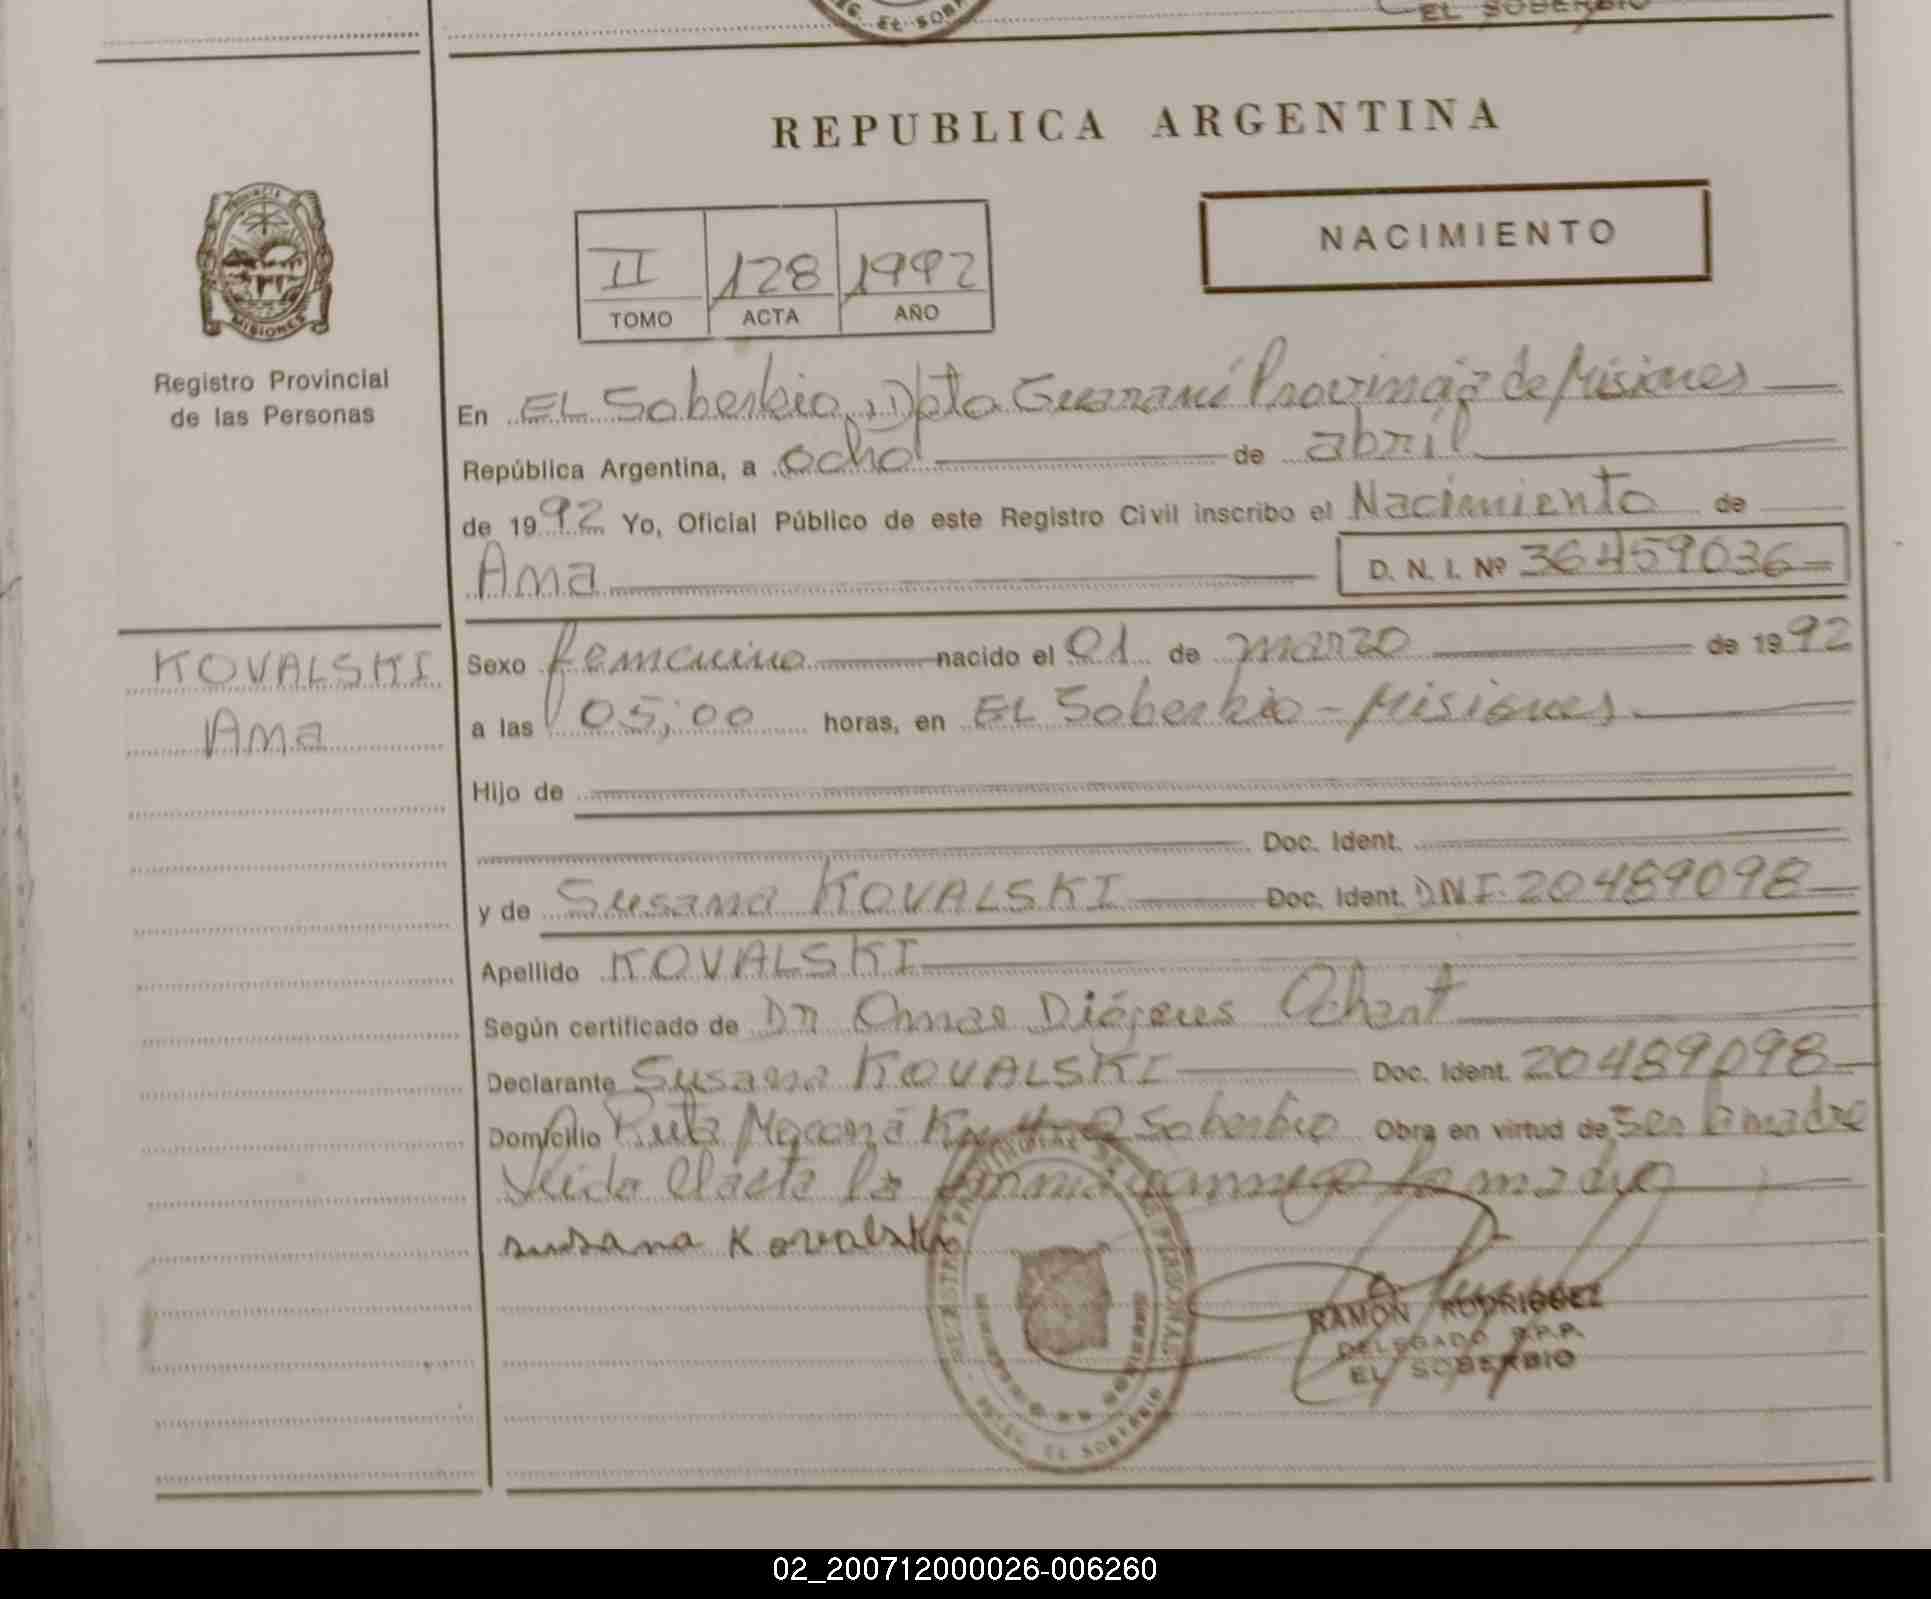 EL SOBERBIO
REPUBLICA ARGENTINA
PROVINCIA
MISIONES
Registro Provincial
de las Personas
II 128 1992
TOMO ACTA AÑO
NACIMIENTO
En EL Soberbio, Dpto Guaraní Provincia de Misiones
República Argentina, a ocho de abril
de 1992 Yo, Oficial Público de este Registro Civil inscribo el Nacimiento de
Ana D. N. I. Nº 36459036
KOVALSKI
Ana
Sexo femenino nacido el 01 de marzo de 1992
a las 05,00 horas, en EL Soberbio - Misiones
Hijo de
Doc. Ident.
y de Susana KOVALSKI Doc. Ident. DNI. 20489098
Apellido KOVALSKI
Según certificado de Dr Omar Diógenes
Declarante Susana KOVALSKI Doc. Ident. 20489098
Domicilio Ruta Moconá Km Soberbio Obra en virtud de Ser la madre
Leida el acta la firma conmigo la madre
susana Kovalski
RAMÓN RODRIGUEZ
DELEGADO R.P.P.
EL SOBERBIO
02_200712000026-006260